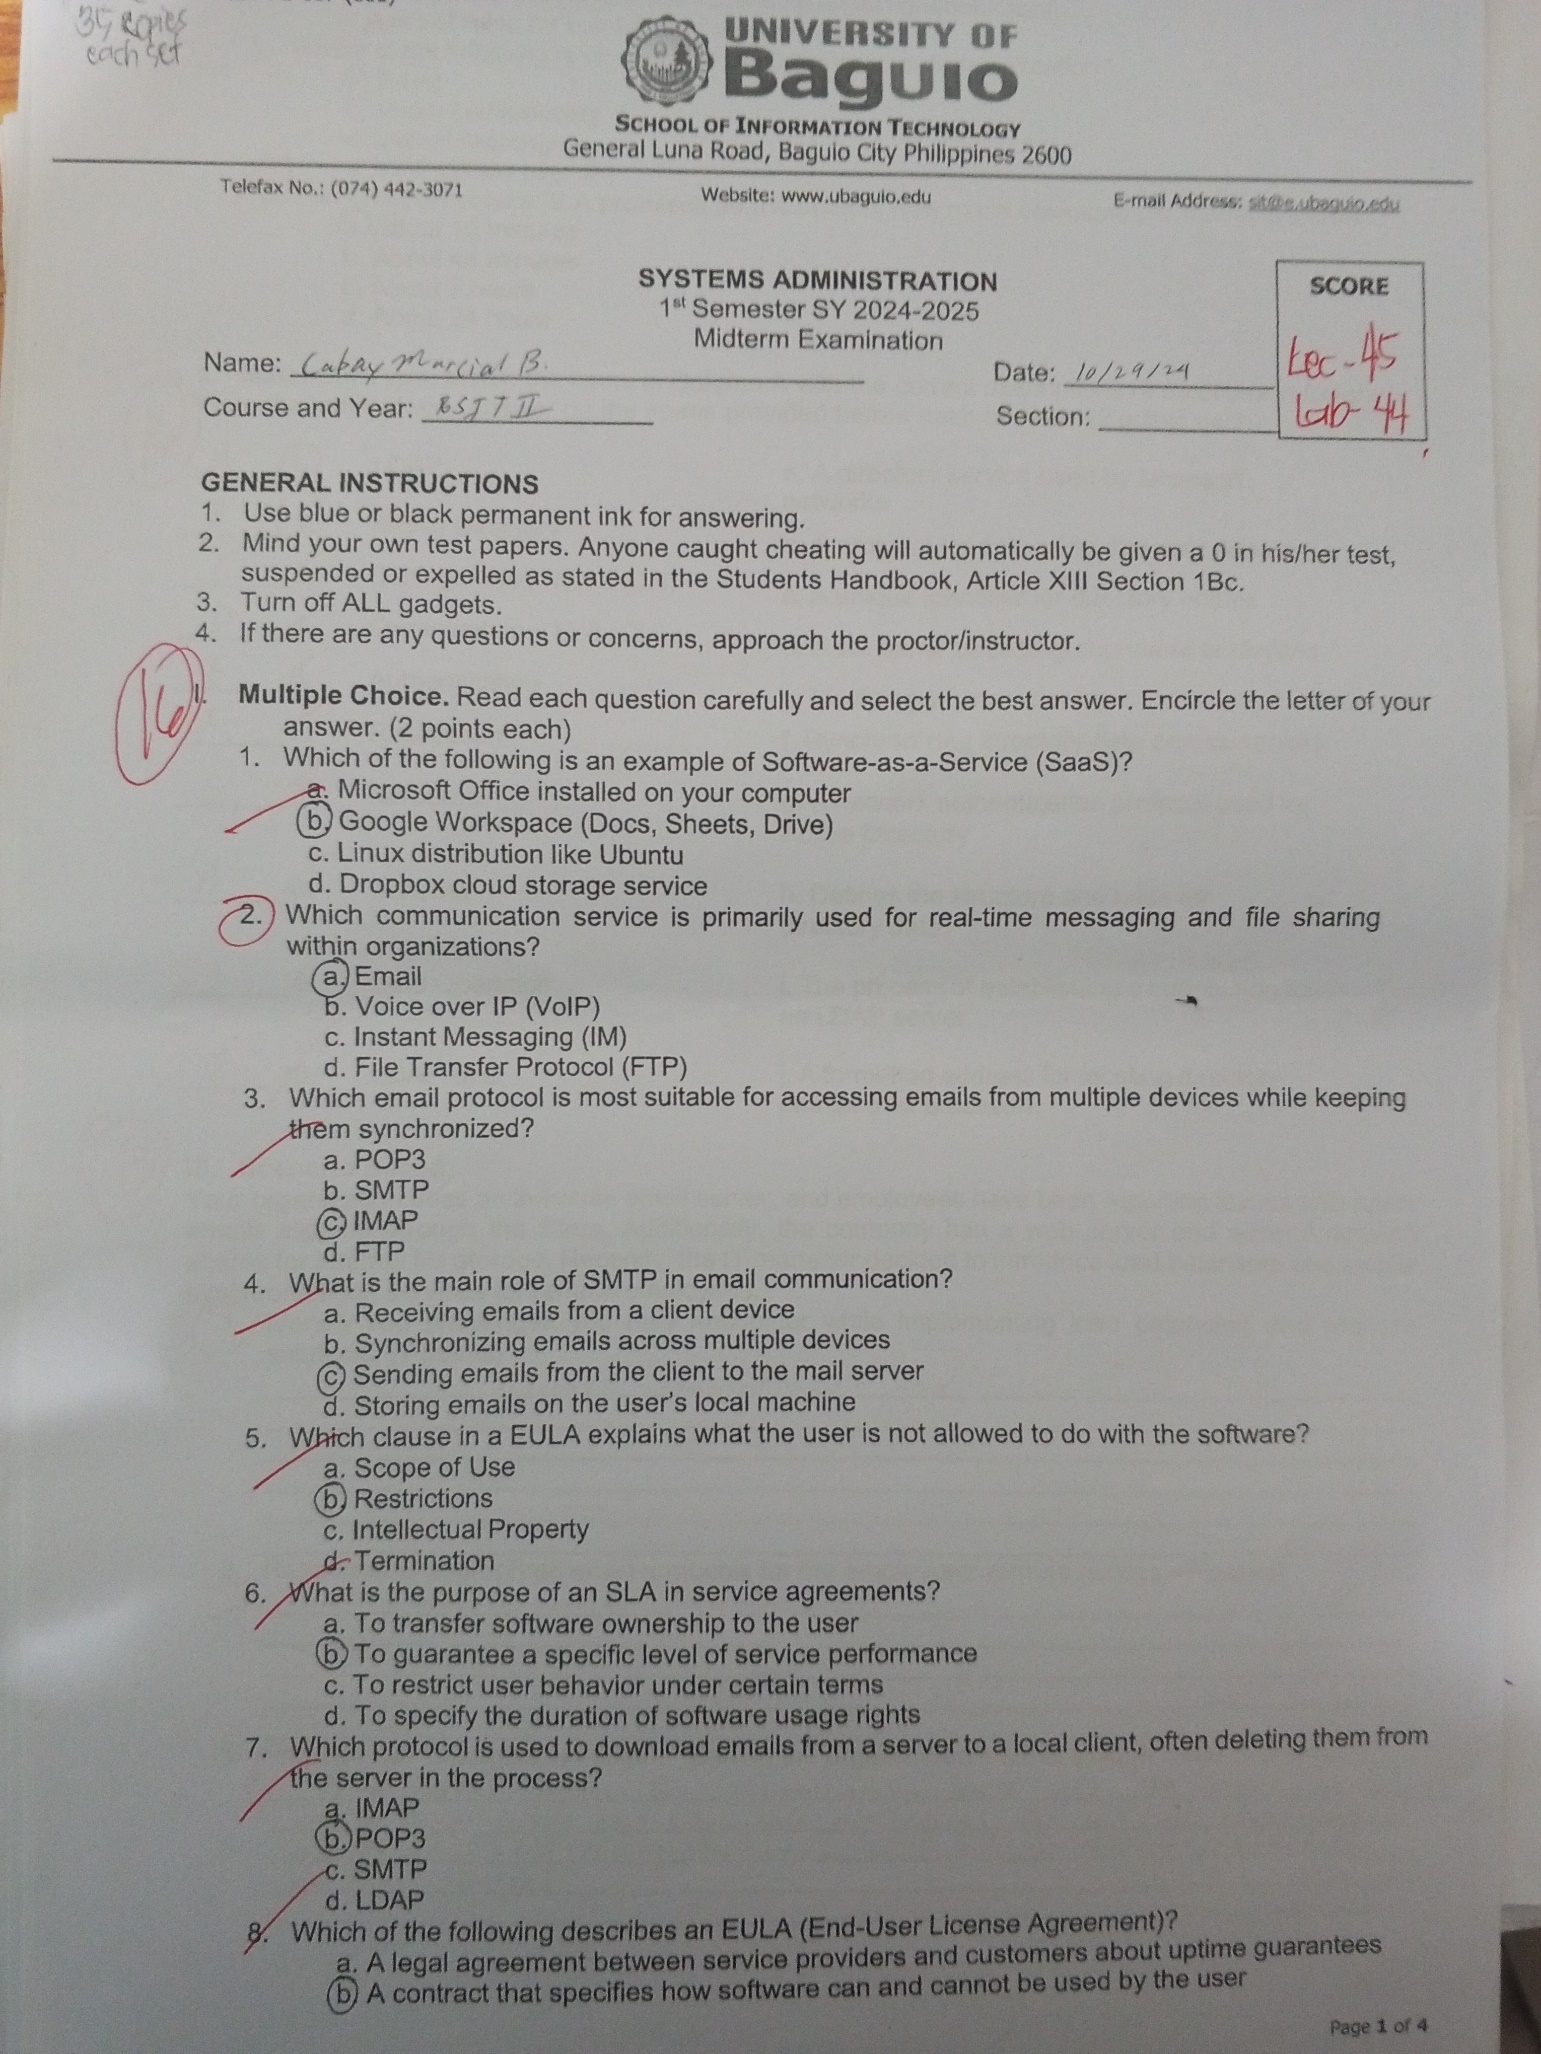 35 copies
each set
UNIVERSITY OF
Baguio
SCHOOL OF INFORMATION TECHNOLOGY
General Luna Road, Baguio City Philippines 2600
Telefax No.: (074) 442-3071 Website: www.ubaguio.edu E-mail Address: sit@e.ubaguio.edu
SYSTEMS ADMINISTRATION
1st Semester SY 2024-2025
Midterm Examination
SCORE
Lec - 45
Lab - 44
Name: Cabay Marcial B. Date: 10/29/24
Course and Year: BSIT II Section:
GENERAL INSTRUCTIONS
1. Use blue or black permanent ink for answering.
2. Mind your own test papers. Anyone caught cheating will automatically be given a 0 in his/her test,
suspended or expelled as stated in the Students Handbook, Article XIII Section 1Bc.
3. Turn off ALL gadgets.
4. If there are any questions or concerns, approach the proctor/instructor.
16
I. Multiple Choice. Read each question carefully and select the best answer. Encircle the letter of your
answer. (2 points each)
1. Which of the following is an example of Software-as-a-Service (SaaS)?
a. Microsoft Office installed on your computer
b. Google Workspace (Docs, Sheets, Drive)
c. Linux distribution like Ubuntu
d. Dropbox cloud storage service
2. Which communication service is primarily used for real-time messaging and file sharing
within organizations?
a. Email
b. Voice over IP (VoIP)
c. Instant Messaging (IM)
d. File Transfer Protocol (FTP)
3. Which email protocol is most suitable for accessing emails from multiple devices while keeping
them synchronized?
a. POP3
b. SMTP
c. IMAP
d. FTP
4. What is the main role of SMTP in email communication?
a. Receiving emails from a client device
b. Synchronizing emails across multiple devices
c. Sending emails from the client to the mail server
d. Storing emails on the user's local machine
5. Which clause in a EULA explains what the user is not allowed to do with the software?
a. Scope of Use
b. Restrictions
c. Intellectual Property
d. Termination
6. What is the purpose of an SLA in service agreements?
a. To transfer software ownership to the user
b. To guarantee a specific level of service performance
c. To restrict user behavior under certain terms
d. To specify the duration of software usage rights
7. Which protocol is used to download emails from a server to a local client, often deleting them from
the server in the process?
a. IMAP
b. POP3
c. SMTP
d. LDAP
8. Which of the following describes an EULA (End-User License Agreement)?
a. A legal agreement between service providers and customers about uptime guarantees
b. A contract that specifies how software can and cannot be used by the user
Page 1 of 4